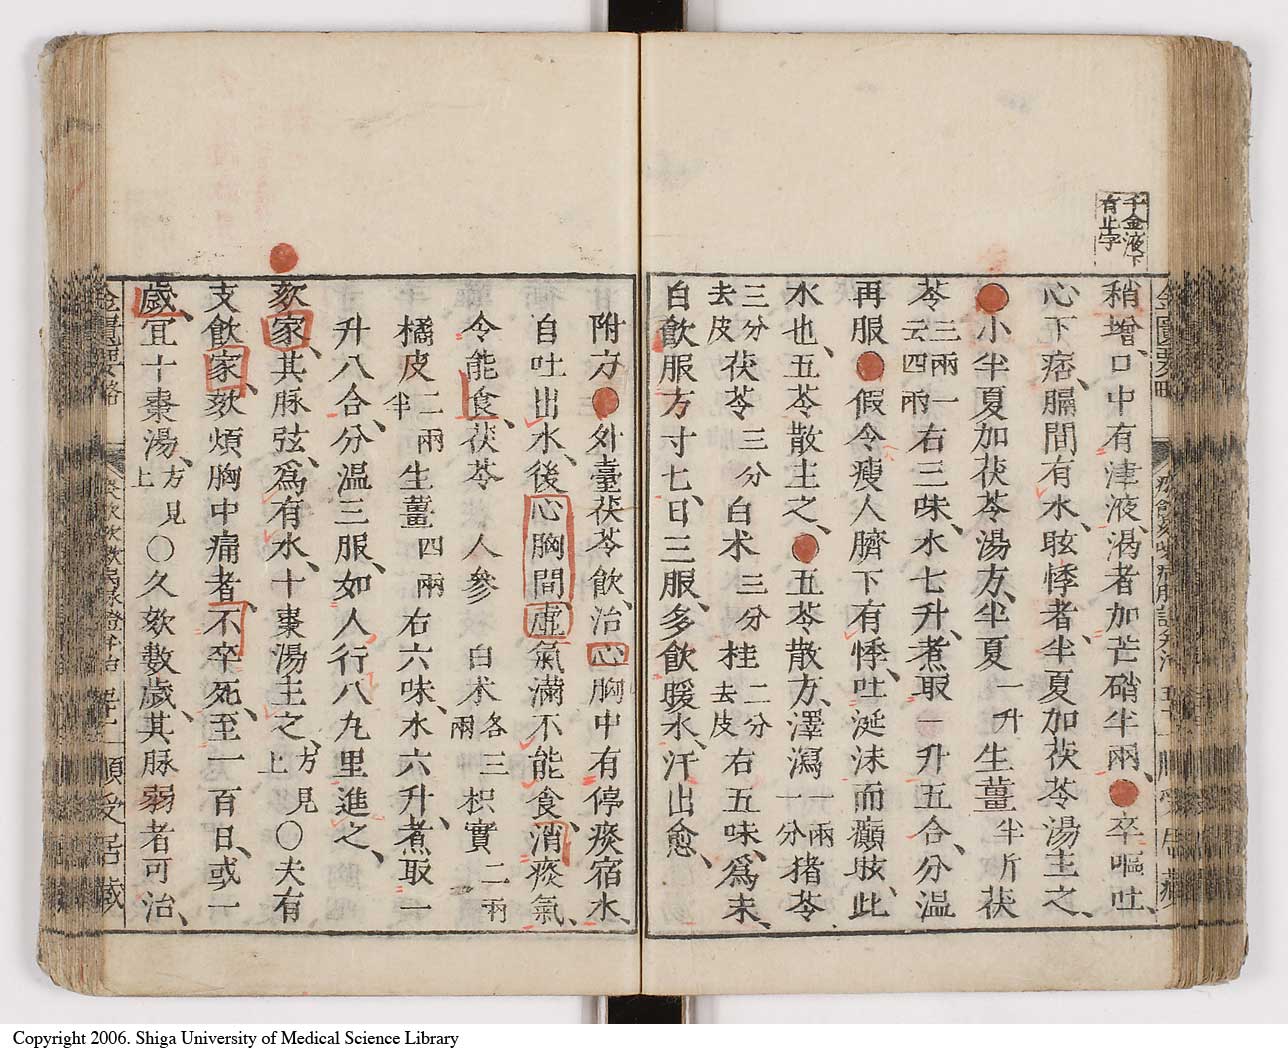 千金液下
有止字
稍增、口中有津液、渴者加芒硝半兩、●卒嘔吐、
心下痞、膈間有水、眩悸者、半夏加茯苓湯主之、
●小半夏加茯苓湯方、半夏一升生薑半斤茯
苓三兩一云四兩右三味、水七升、煮取一升五合、分溫
再服●假令瘦人臍下有悸、吐涎沫而癲眩、此
水也、五苓散主之、●五苓散方、澤瀉一兩一分猪苓
三分去皮茯苓三分白朮三分桂二分去皮右五味、爲末、
白飲服方寸七、日三服、多飲暖水、汗出愈、
附方●外臺茯苓飲、治心胸中有停痰宿水、
自吐出水、後心胸間、虛氣滿不能食、消痰氣、
令能食、茯苓 人參 白朮各三兩枳實二兩
橘皮二兩半生薑四兩右六味、水六升、煮取一
升八合、分溫三服、如人行八九里進之、
欬家、其脉弦、爲有水、十棗湯主之、方見上〇夫有
支飲家、欬煩胸中痛者、不卒死、至一百日、或一
歲、宜十棗湯、方見上〇久欬數歲、其脉弱者可治、
Copyright 2006. Shiga University of Medical Science Library